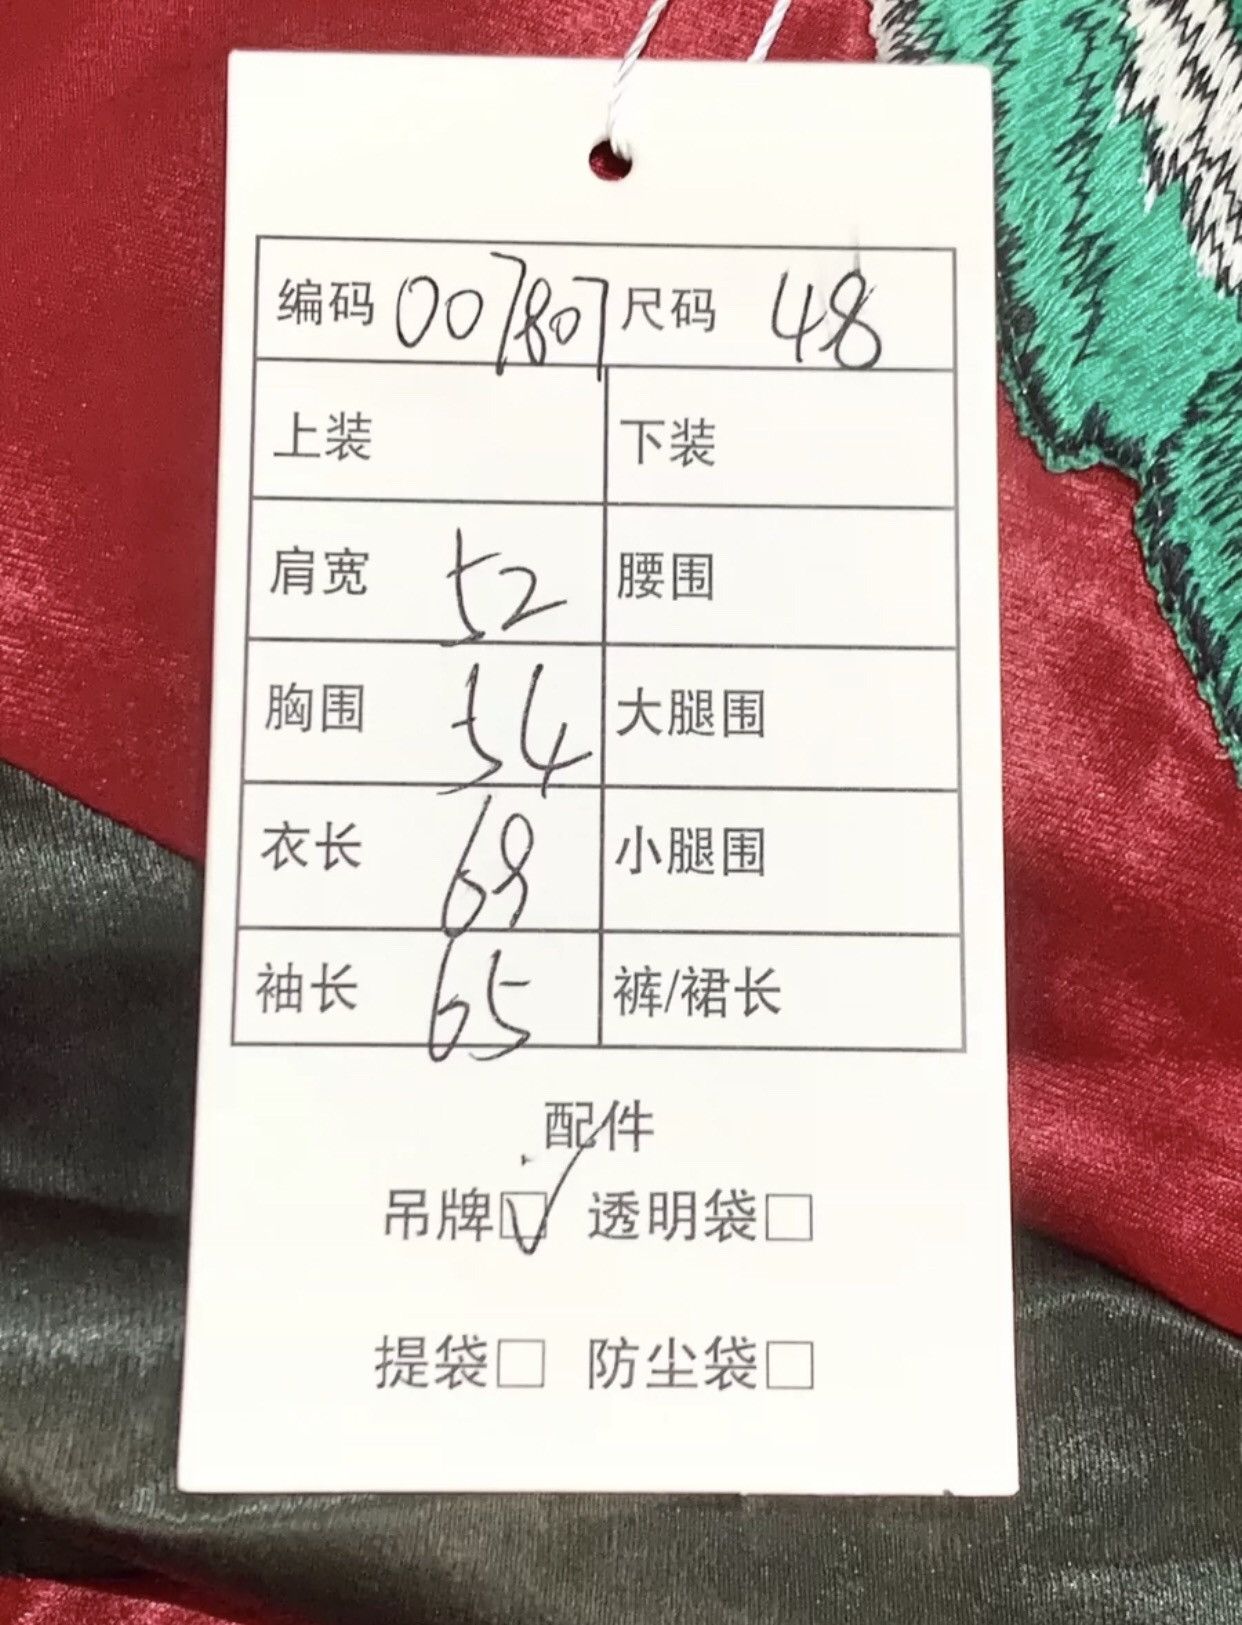 编码 007807 尺码 48
上装 下装
肩宽 52 腰围
胸围 54 大腿围
衣长 69 小腿围
袖长 65 裤/裙长
配件
吊牌☑ 透明袋□
提袋□ 防尘袋□